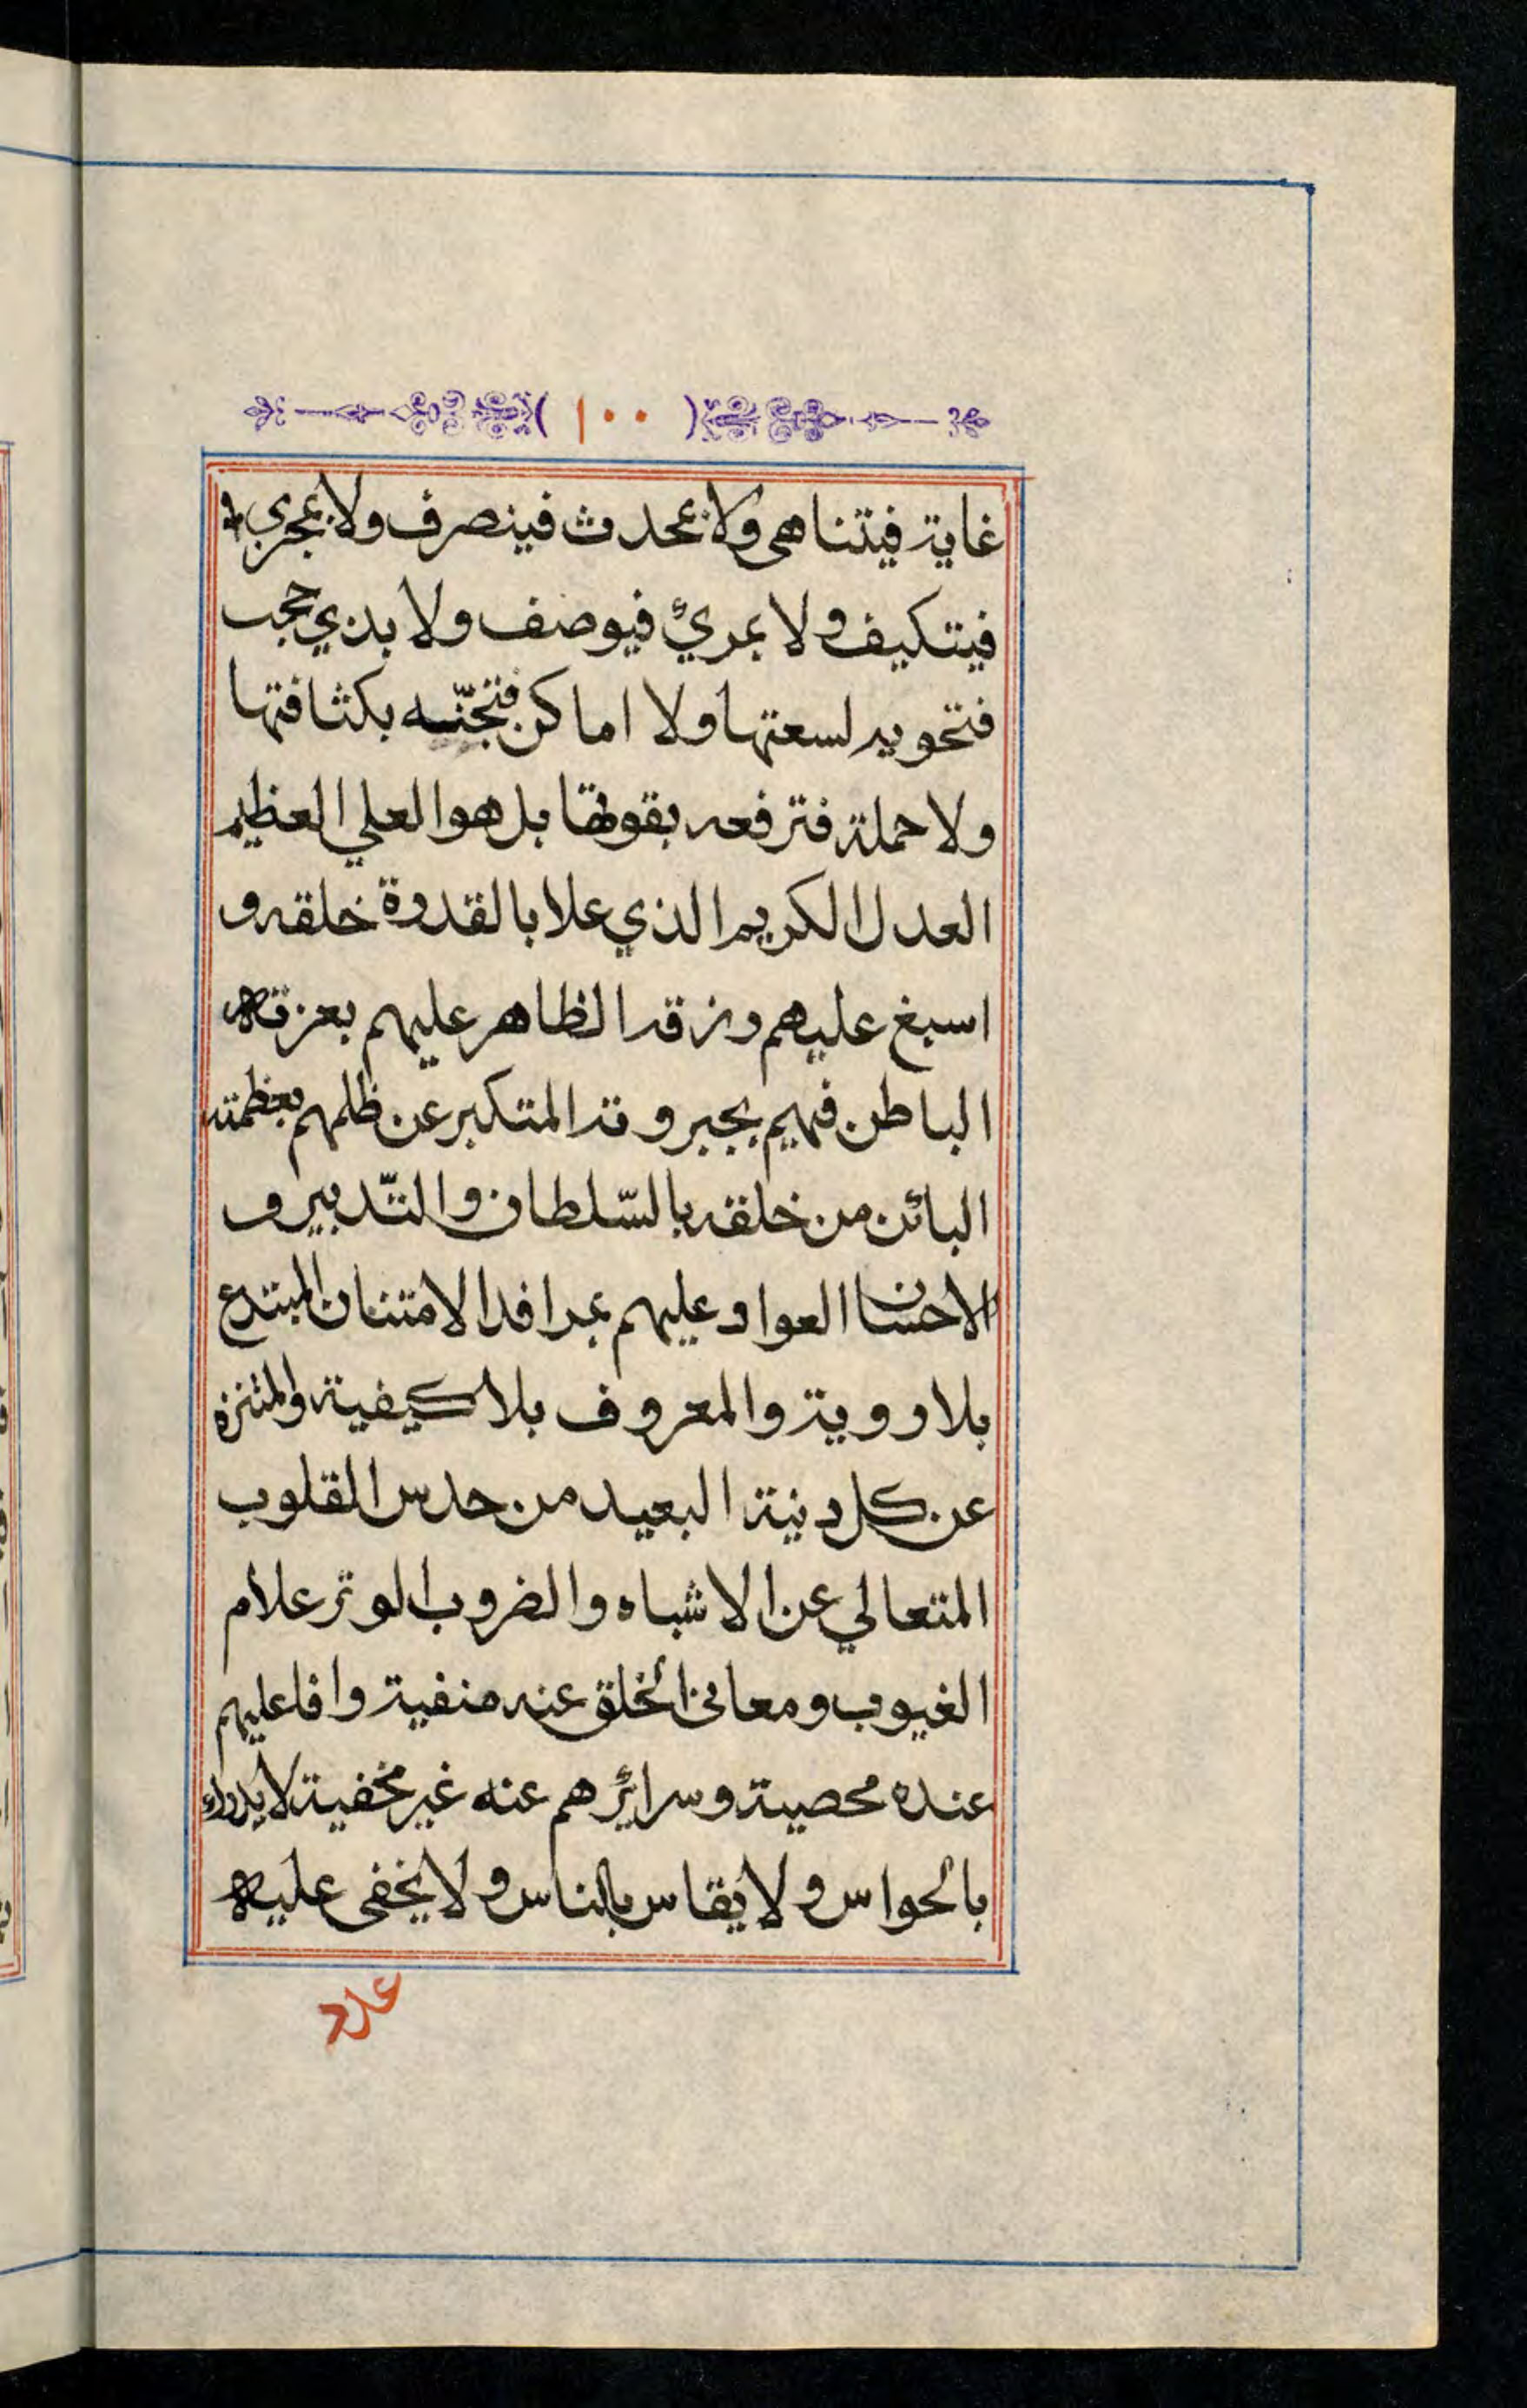 ( ١٠٠ )
غاية فيتناهى ولا بمحدث فينصرف ولا بمجزي
فيتكيف ولا بمرئ فيوصف ولا بذي حجب
فتحويه لسعتها ولا اماكن فتجنّه بكثافتها
ولا حملة فترفعه بقوتها بل هو العلي العظيم
العدل الكريم الذي علا بالقدرة خلقه و
اسبغ عليهم رزقه الظاهر عليهم بعزته
الباطن فيهم بجبروته المتكبر عن ظلمهم بعظمته
البائن من خلقه بالسّلطان والتّدبير و
الاحسان العواد عليهم بمرافد الامتنان المبتدع
بلا روية والمعروف بلا كيفية والمتنزه
عن كل دنية البعيد من حدس القلوب
المتعالي عن الاشباه والضروب الوتر علام
الغيوب ومعاني الخلق عنه منفية وافاعليهم
عنده محصية وسرائرهم عنه غير مخفية لا يدرك
بالحواس ولا يقاس بالناس ولا يخفى عليه
عدد